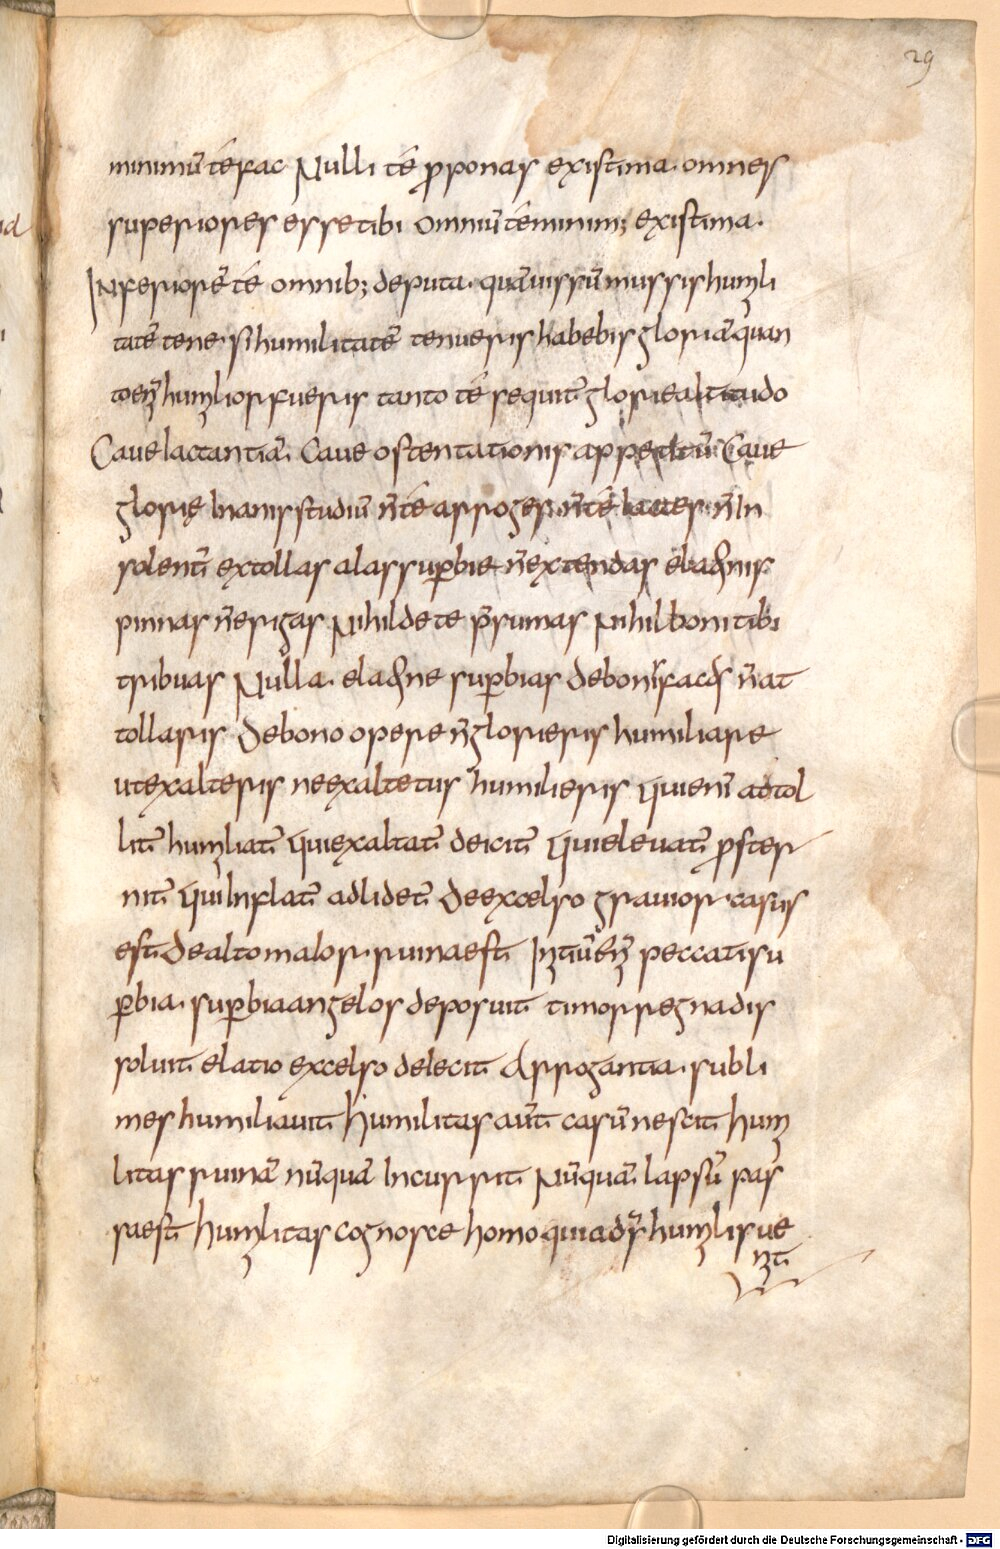 29
minimū té fac Nulli té p̄ponas existima. omnes
superiores esse tibi omniū té minim; existima.
Inferiorē té omnib; deputa. quāuis sūmus sis humili
tatē tene. si humilitatē tenueris habebis gloriā quan
to en̄ humilior fueris tanto té sequit̄ glorie altitudo
Caue lactantiā. Caue ostentationis appetitū Caue
glorię Inanis studiū n̄ té arroges. n̄ té iactes. n̄ In
solent̄ extollas alas sup̄bie n̄ extendas elationis
pinnas n̄ erigas Nihil de te p̄sumas Nihil boni tibi
tribuas Nulla. elatione sup̄bias de bonis factis n̄ at
tollaris De bono opere n̄ glorieris humiliare
ut exalteris ne exaltetus humilieris Qui eni adtol
lit̄ humiliat̄ Qui exaltat̄ deicit̄ Qui eleuat̄ p̄ster
nit̄ Qui Inflat̄ adlidet̄ De excelso grauior casus
est De alto maior. ruina est Intiū en̄ peccati su
p̄bia. sup̄bia angelos deposuit timor regna dis
soluit elatio excelso deiecit Arrogantia. subli
mes humiliauit Humilitas aut̄ casū nescit humi
litas ruinā nūquā Incurrit Nūquā lapsū pas
sa est humilitas cognosce homo quia d̄s humilis ue
nit
Digitalisierung gefördert durch die Deutsche Forschungsgemeinschaft - DFG